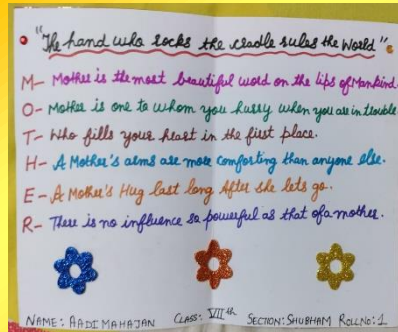 "The hand who rocks the cradle rules the World"
M- Mother is the most beautiful word on the lips of Mankind.
O- Mother is one to whom you hurry when you are in trouble
T- Who fills your heart in the first place.
H- A Mother's arms are more comforting than anyone else.
E- A Mother's Hug last long After she lets go.
R- There is no influence so powerful as that of a mother.
NAME: AADI MAHAJAN CLASS: VIIth SECTION: SHUBHAM ROLLNO: 1